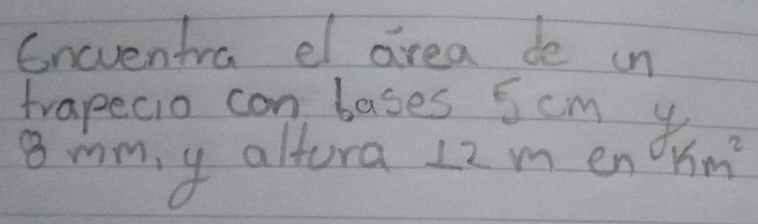 Encuentra el área de un
trapecio con bases 5 cm y
8 mm, y altura 12 m en Km²